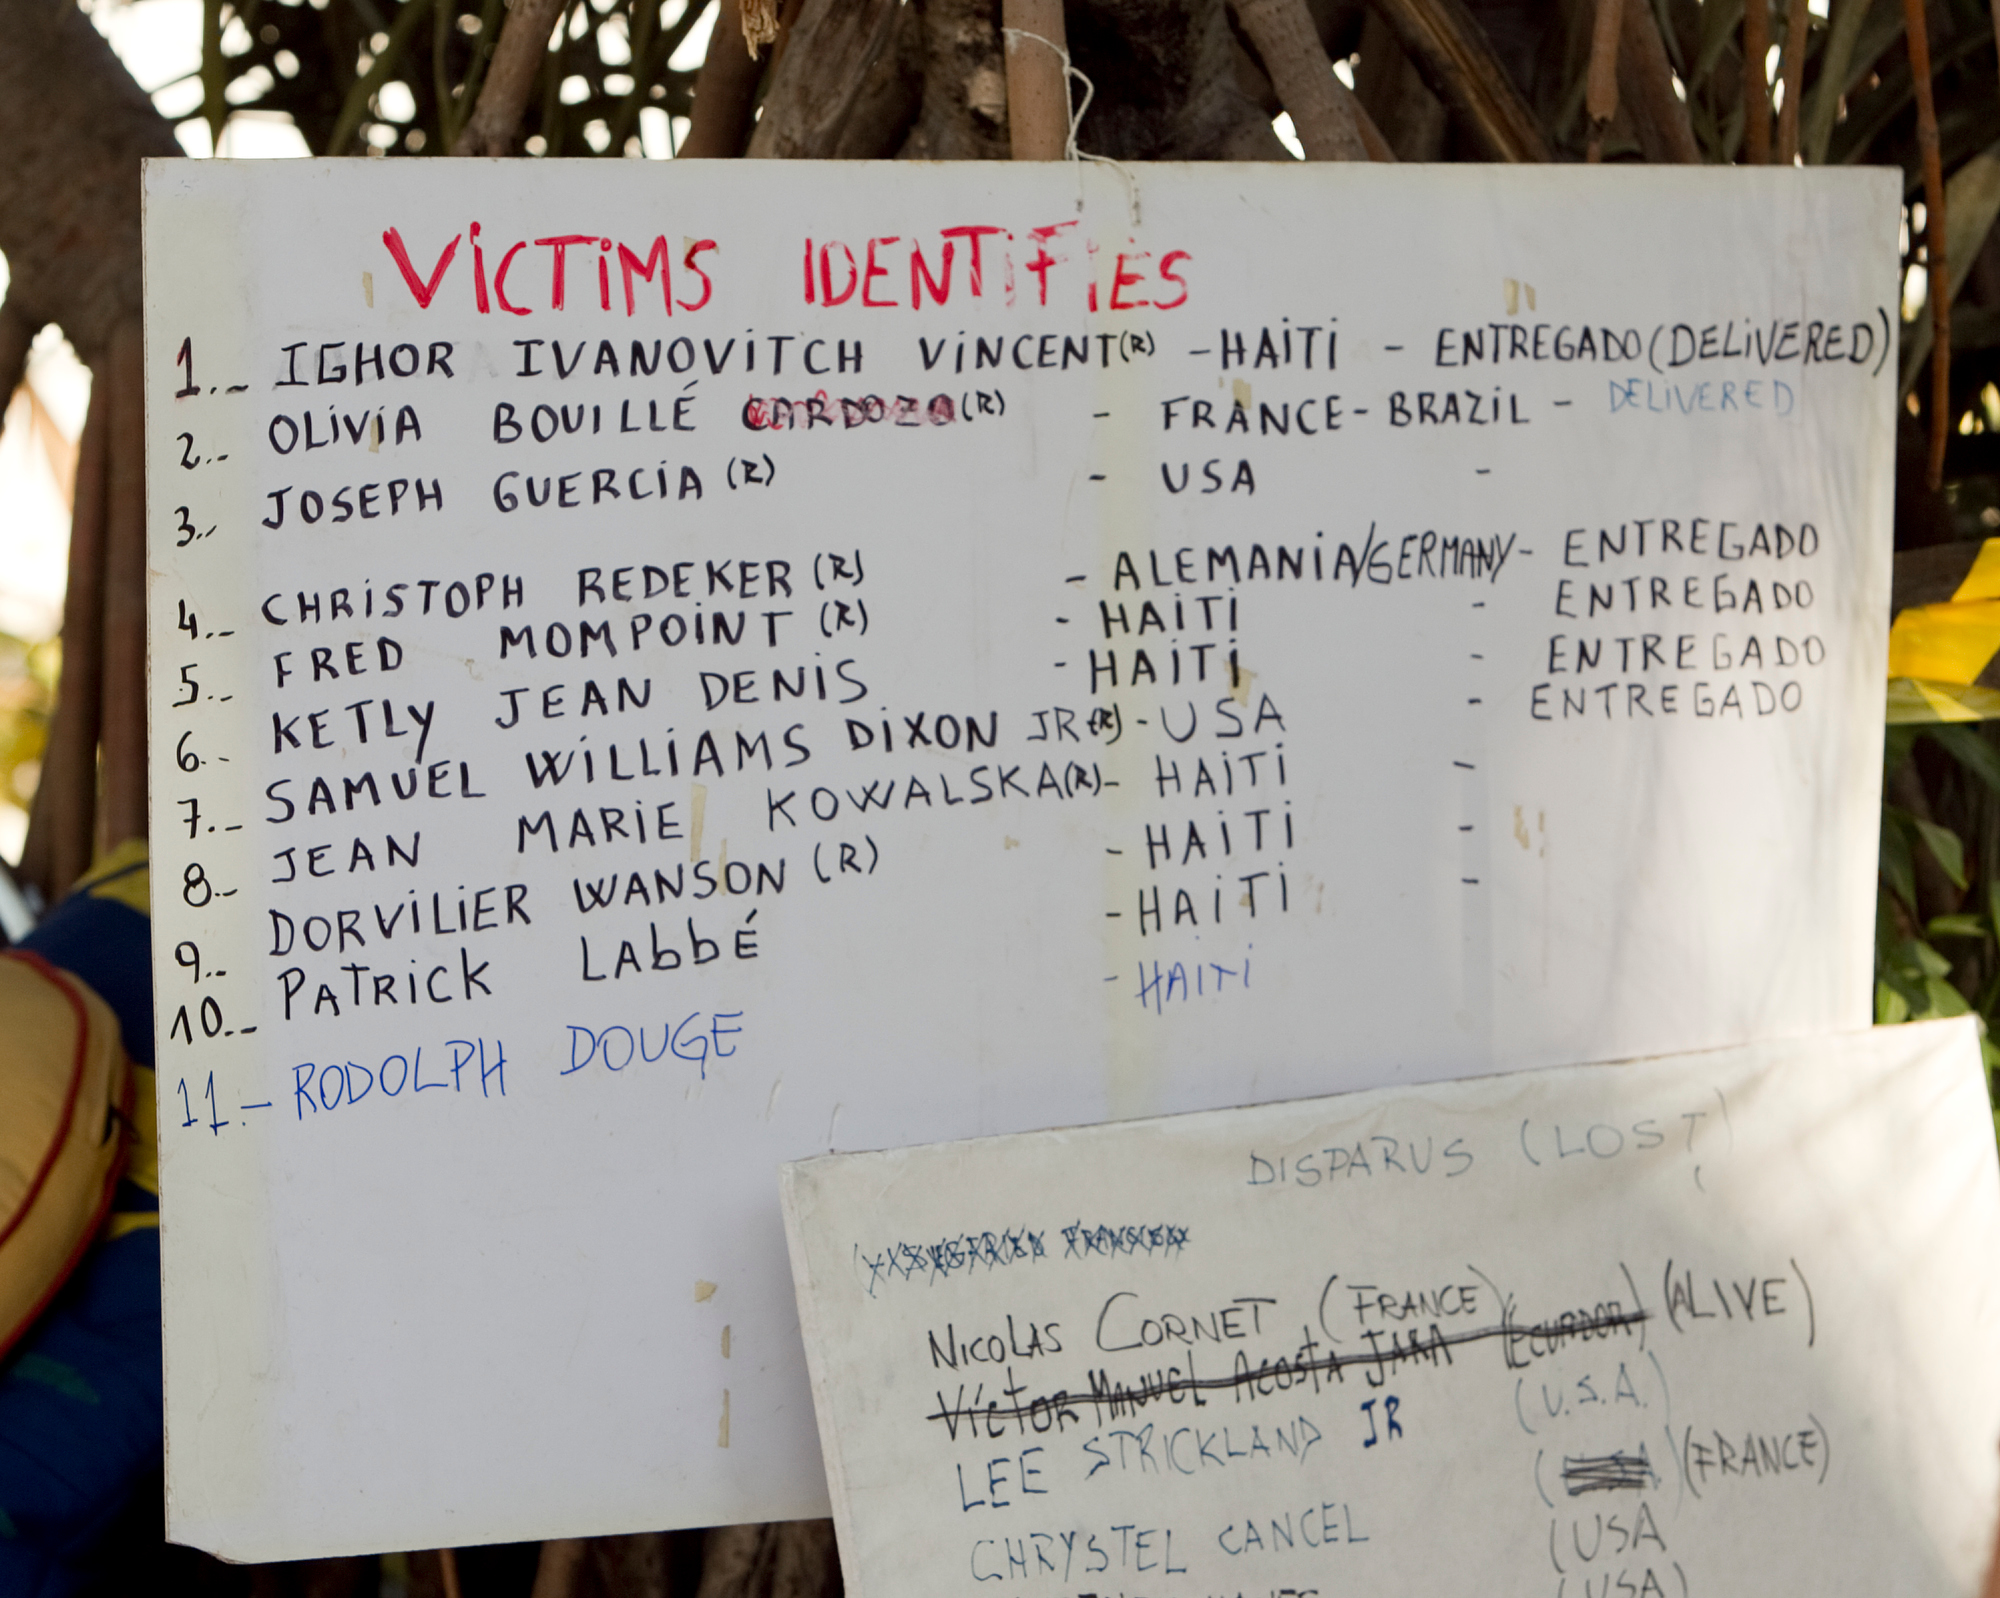 VICTIMS IDENTIFIES
1.- IGHOR IVANOVITCH VINCENT (R) - HAITI - ENTREGADO (DELIVERED)
2.- OLIVIA BOUILLÉ CARDOZO (R) - FRANCE - BRAZIL - DELIVERED
3.- JOSEPH GUERCIA (R) - USA -
4.- CHRISTOPH REDEKER (R) - ALEMANIA/GERMANY - ENTREGADO
5.- FRED MOMPOINT (R) - HAITI - ENTREGADO
6.- KETLY JEAN DENIS - HAITI - ENTREGADO
7.- SAMUEL WILLIAMS DIXON JR (R) - USA - ENTREGADO
8.- JEAN MARIE KOWALSKA (R) - HAITI -
9.- DORVILIER WANSON (R) - HAITI -
10.- PATRICK LABBÉ - HAITI -
11.- RODOLPH DOUGE - HAITI
DISPARUS (LOST)
NICOLAS CORNET (FRANCE)
VÍCTOR MANUEL ACOSTA JARA (ECUADOR) (ALIVE)
LEE STRICKLAND JR (U.S.A.)
CHRYSTEL CANCEL (FRANCE)
(USA
(USA)